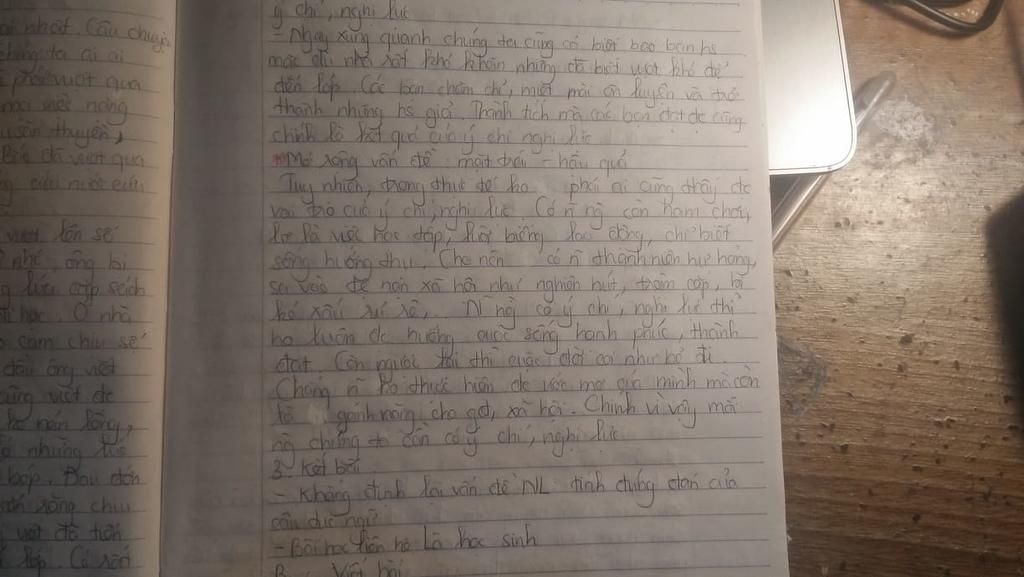 ại nhất. Câu chuyện
chúng ta ai ai
phải vượt qua
mọi việc nóng
thuyền,
Bác đã vượt qua
cứu nước cứu
vượt lên số
nhỏ, ông bị
cắp sách
học. Ở nhà
cam chịu số
đầu ông viết
cũng viết đc
ko nản lòng,
những lúc
bóp. Đau đớn
rằng chịu
viết đã tiến
lớp. Có rồi
ý chí, nghị lực
- Ngay xung quanh chúng ta cũng có biết bao bạn hs
mặc dù nhà rất khó khăn nhưng đã biết vượt khó để
đến lớp. Các bạn chăm chỉ, miệt mài ôn luyện và trở
thành những hs giỏi. Thành tích mà các bạn đạt đc cũng
chính là kết quả của ý chí nghị lực
* Mở rộng vấn đề: mặt trái - hậu quả
Tuy nhiên, trong thực tế ko phải ai cũng thấy đc
vai trò của ý chí, nghị lực. Có n~ ng` còn ham chơi,
lơ là việc học tập, lười biếng lao động, chỉ biết
sống hưởng thụ. Cho nên có n~ thanh niên hư hỏng,
sa vào tệ nạn xã hội như nghiện hút, trộm cắp, bị
kẻ xấu rủ rê,. N~ ng` có ý chí, nghị lực thì
họ luôn đc hưởng cuộc sống hạnh phúc, thành
đạt. Còn ngược lại thì cuộc đời coi như bỏ đi.
Chẳng n~ ko thực hiện đc ước mơ của mình mà còn
là gánh nặng cho gđ, xã hội. Chính vì vậy mà
ng` chúng ta cần có ý chí, nghị lực
3. Kết bài
- Khẳng định lại vấn đề NL: tính đúng đắn của
câu tục ngữ
- Bài học liên hệ: Là học sinh
Viết bài